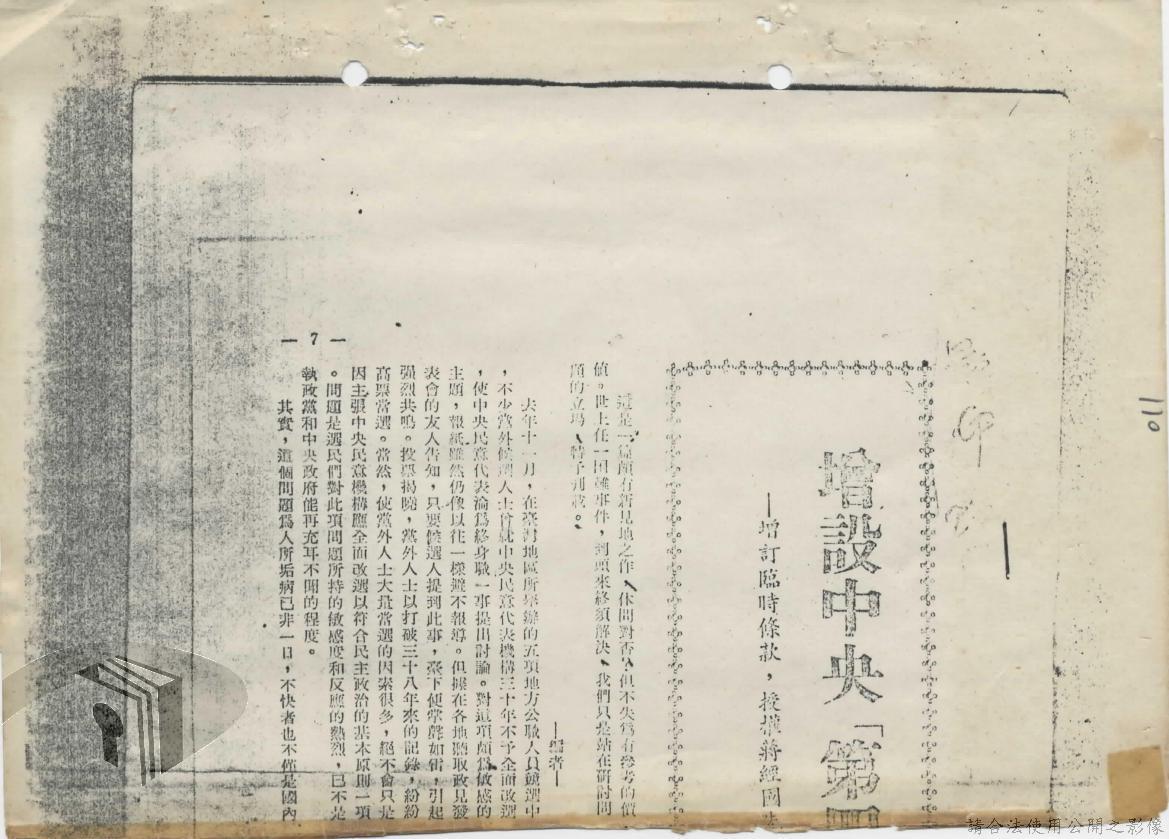 110
增設中央「第四
—增訂臨時條款，授權蔣經國
這是一篇頗有新見地之作、休問對否、但不失為有參考的價
值。世上任一困難事件，到頭來終須解決、我們只是站在研討問
題的立場、特予刊載。
—編者—
去年十一月，在臺灣地區所舉辦的五項地方公職人員競選中
，不少黨外候選人士曾就中央民意代表機構三十年不予全面改選
，使中央民意代表淪為終身職一事提出討論。對這項頗為敏感的
主題，報紙雖然仍像以往一樣避不報導。但據在各地聽取政見發
表會的友人告知，只要候選人提到此事，臺下便掌聲如雷，引起
强烈共鳴。投票揭曉，黨外人士以打破三十八年來的記錄，紛紛
高票當選。當然，使黨外人士大量當選的因素很多，絕不會只是
因主張中央民意機構應全面改選以符合民主政治的基本原則一項
。問題是選民們對此項問題所持的敏感度和反應的熱烈，已不是
執政黨和中央政府能再充耳不聞的程度。
其實，這個問題爲人所垢病已非一日，不快者也不僅是國內
— 7 —
請合法使用公開之影像